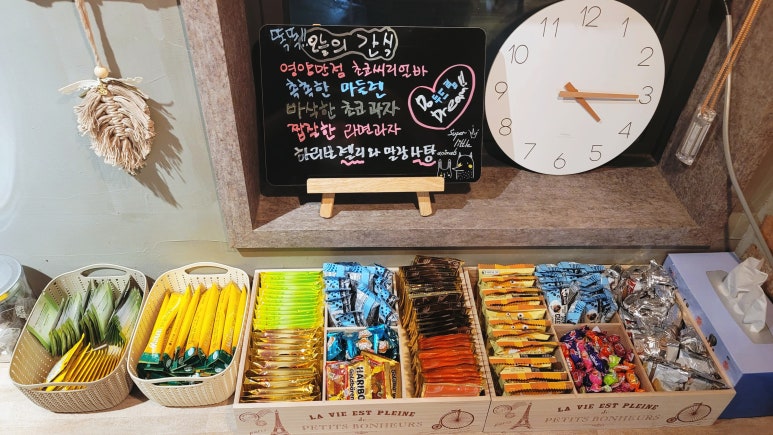 똑똑!! 오늘의 간식
영양만점 초코씨리얼바
촉촉한 마들렌
바삭한 초코과자
짭짤한 라면과자
하리보젤리와 말랑사탕
Do
Dream!!
Super
little
12
1
2
3
4
5
6
7
8
9
10
11
HARIBO
Goldbären
LA VIE EST PLEINE
de
PETITS BONHEURS
LA VIE EST PLEINE
de
PETITS BONHEURS